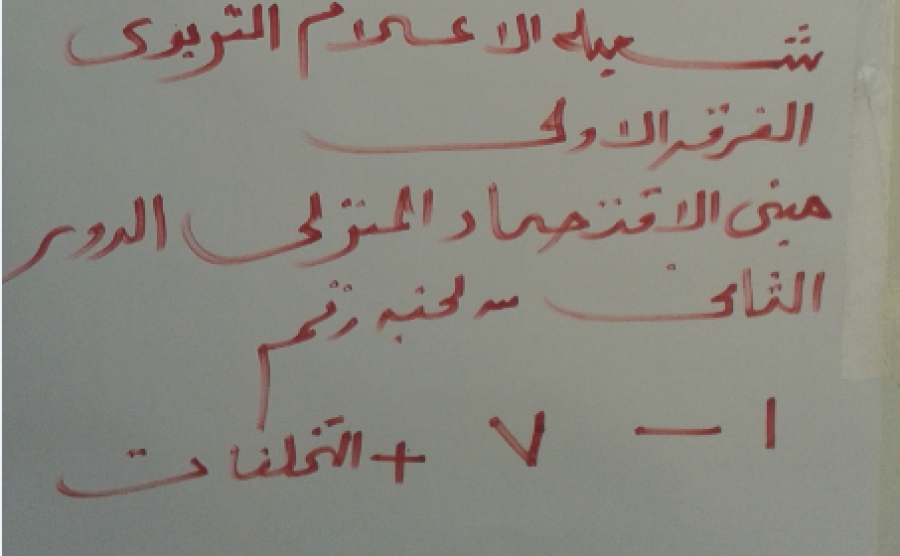 شعبه الاعلام التربوى
الفرقه الاولى
مبنى الاقتصاد المنزلى الدور
الثانى من لجنه رقم
١ - ٧ + التخلفات